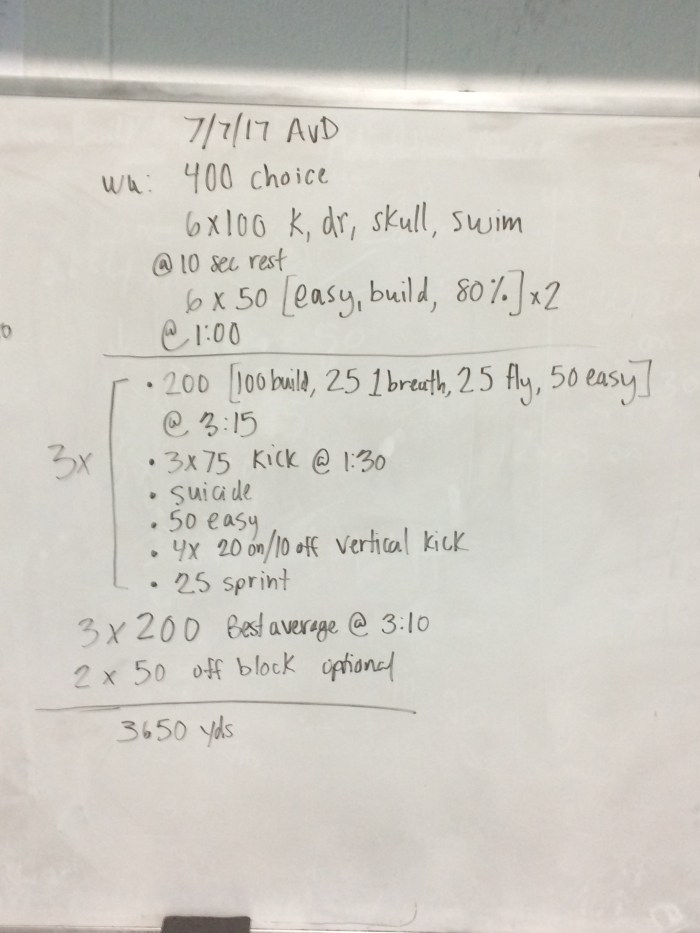 7/7/17 AVD
Wu: 400 choice
6x100 K, dr, skull, swim
@ 10 sec rest
6 x 50 [easy, build, 80%] x2
@ 1:00
• 200 [100 build, 25 1 breath, 25 fly, 50 easy]
@ 3:15
3x
• 3x75 Kick @ 1:30
• suicide
• 50 easy
• 4x 20 on/10 off vertical kick
• 25 sprint
3 x 200 Best average @ 3:10
2 x 50 off block optional
3650 yds